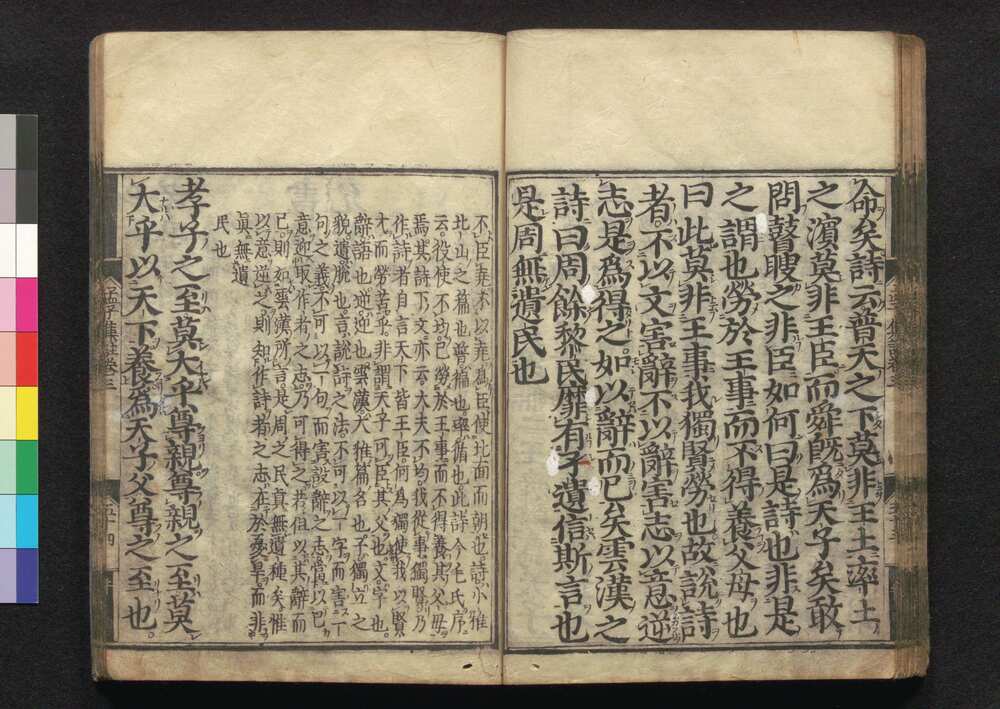 命矣詩云普天之下莫非王土率土
之濱莫非王臣而舜既爲天子矣敢
問瞽瞍之非臣如何曰是詩也非是
之謂也勞於王事而不得養父母也
曰此莫非王事我獨賢勞也故説詩
者不以文害辭不以辭害志以意逆
志是爲得之如以辭而已矣雲漢之
詩曰周餘黎民靡有孑遺信斯言也
是周無遺民也
不臣堯不以堯為臣使北面而朝也詩小雅
北山之篇也普徧也率循也此詩今毛氏序
云役使不均已勞於王事而不得養其父母
焉其詩下文亦云大夫不均我從事獨賢乃
作詩者自言天下皆王臣何為獨使我以賢
才而勞苦乎非謂天子可臣其父也文字也
辭語也逆迎也雲漢大雅篇名也孑獨立之
貌遺脱也言說詩之法不可以一字而害一
句之義不可以一句而害設辭之志當以己
意迎取作者之志乃可得之若但以其辭而
已則如雲漢所言是周之民真無遺種矣惟
以意逆之則知作詩者之志在於憂旱而非
眞無遺
民也
孝子之至莫大乎尊親尊親之至莫
大乎以天下養為天子父尊之至也